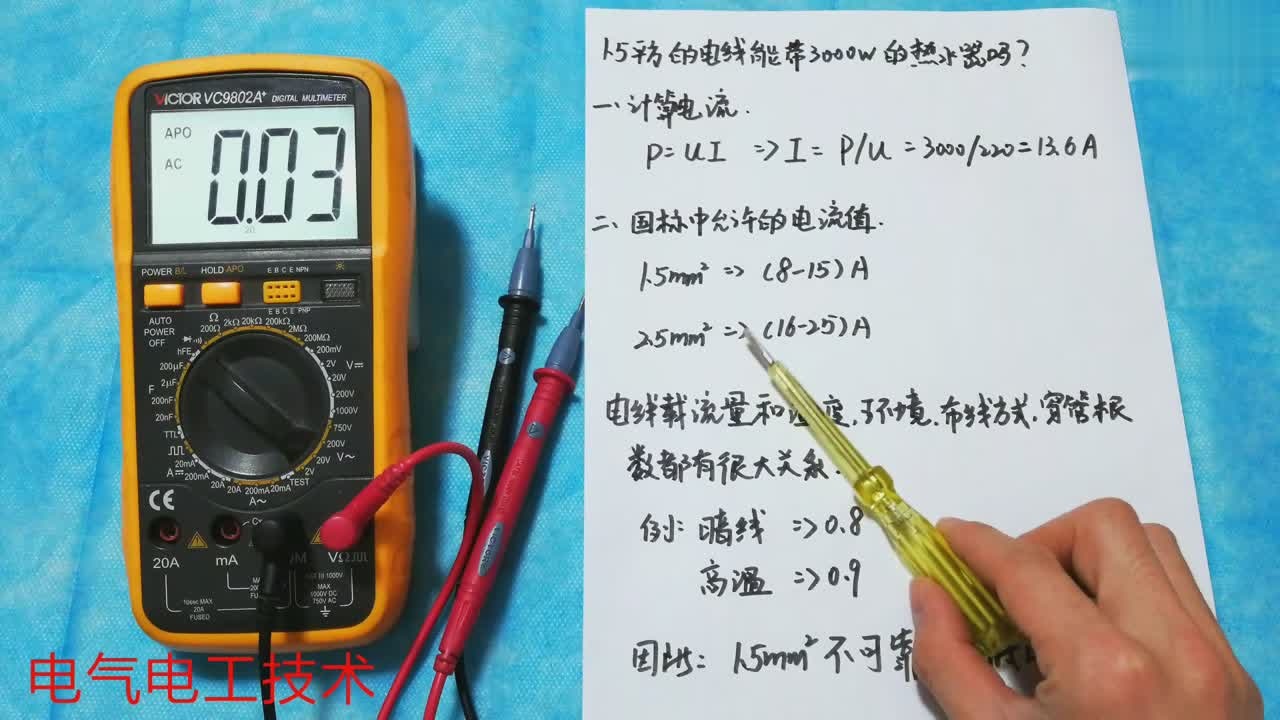 VICTOR VC9802A+ DIGITAL MULTIMETER
APO
AC
0.03
20
POWER B/L HOLD APO E B C E NPN
E B C E PNP
AUTO POWER OFF
Ω
200Ω 2kΩ 20kΩ 200kΩ 2MΩ
200MΩ
hFE
200mV
2V V⎓
20V
200V
1000V
750V
V~
2V
TEST
200μF
F 2μF
200nF
20nF
TTL
20mA
A⎓ 200mA 20A 20A 200mA 20mA
A~
CE
20A mA VΩ
10sec MAX
20A
FUSED
MAX
1000V DC
750V AC
电气电工技术
1.5平方的电线能带3000W的热水器吗?
一、计算电流.
P=UI => I= P/U = 3000/220=13.6A
二、国标中允许的电流值.
1.5mm² => (8-15)A
2.5mm² => (16-25)A
电线载流量和温度,环境,布线方式,穿管根
数都有很大关系.
例: 暗线 => 0.8
高温 => 0.9
因此: 1.5mm² 不可靠